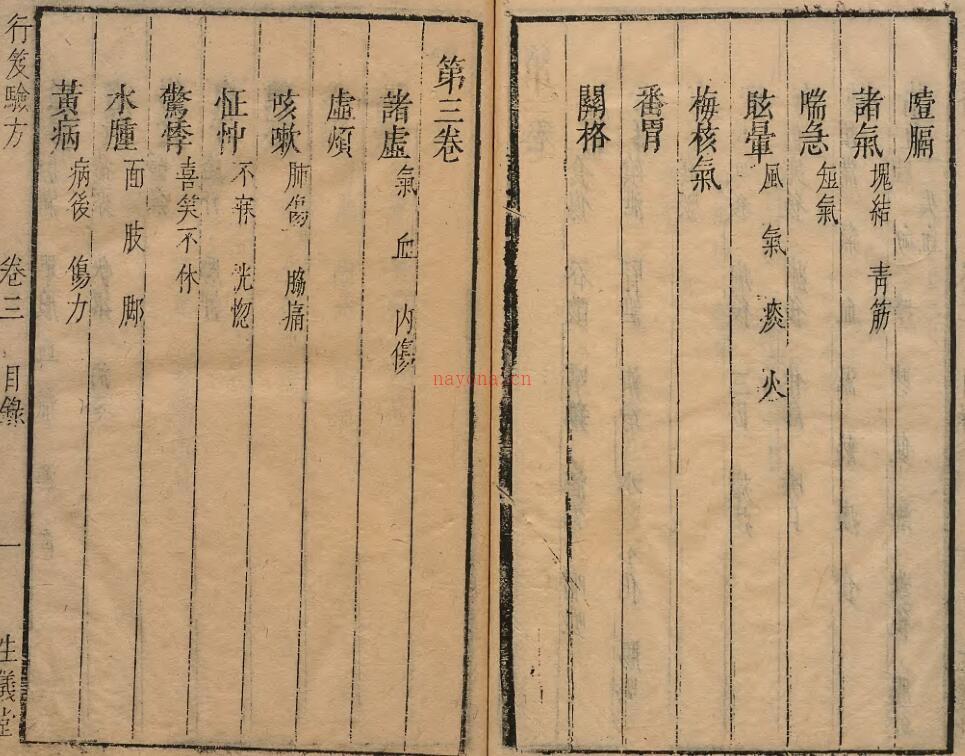 噎膈
諸氣 塊結 青筋
喘急 短氣
眩暈 風 氣 痰 火
梅核氣
番胃
關格
第三卷
諸虛 氣 血 內傷
虛煩
咳嗽 肺傷 脇痛
怔忡 不寐 恍惚
驚悸 喜笑不休
水腫 面 肢 脚
黃病 病後 傷力
行笈驗方 卷三 目錄 一 堂
nayona.cn